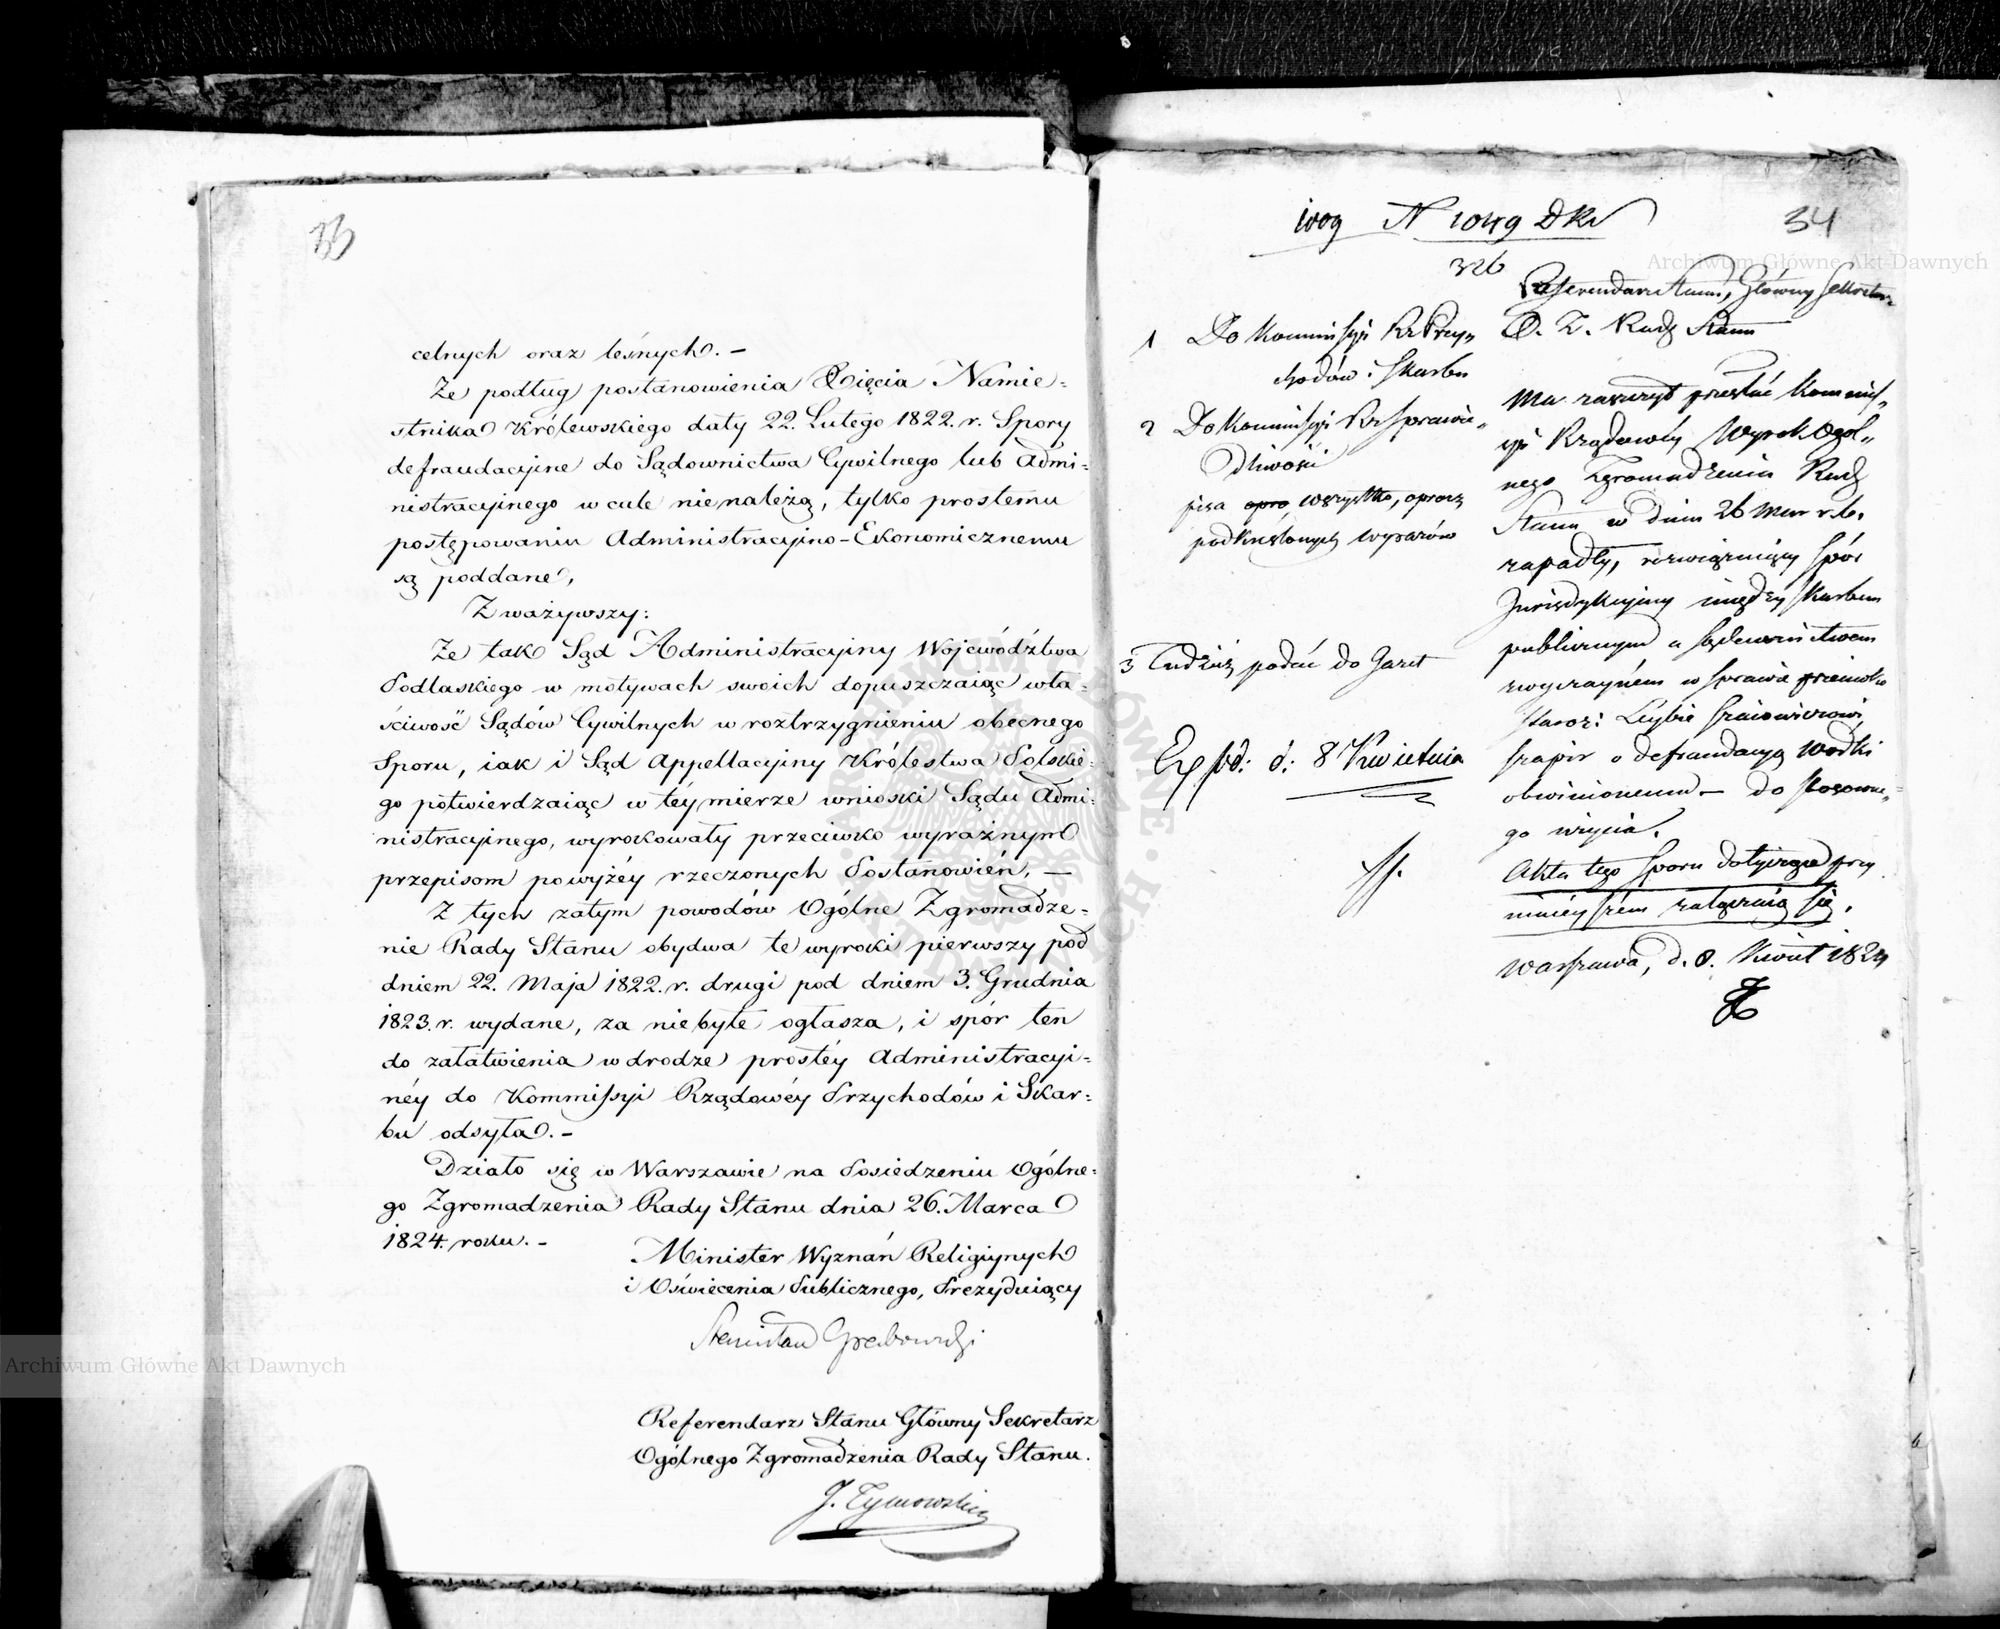 33
celnych oraz leśnych. –
Że podług postanowienia Xięcia Namie-
stnika Królewskiego daty 22. Lutego 1822. r. Spory
defraudacyine do Sądownictwa Cywilnego lub Admi-
nistracyinego w cale nienależą, tylko prostemu
postępowaniu Administracyino-Ekonomicznemu
są poddane,
Zważywszy:
Że tak Sąd Administracyiny Województwa
Podlaskiego w motywach swoich dopuszczaiąc wła-
ściwość Sądów Cywilnych w roztrzygnieniu obecnego
Sporu, iak i Sąd Appellacyiny Królestwa Polskie-
go potwierdzaiąc w téy mierze wnioski Sądu Admi-
nistracyinego, wyrokowały przeciwko wyraźnym
przepisom powyżéy rzeczonych Postanowień. –
Z tych zatym powodów Ogólne Zgromadze-
nie Rady Stanu obydwa te wyroki pierwszy pod
dniem 22. Maja 1822. r. drugi pod dniem 3. Grudnia
1823. r. wydane, za niebyłe ogłasza, i spór ten
do załatwienia w drodze prostéy Administracyi-
néy do Kommissyi Rządowéy Przychodów i Skar-
bu odsyła. –
Działo się w Warszawie na Posiedzeniu Ogólne-
go Zgromadzenia Rady Stanu dnia 26. Marca
1824. roku. –
Minister Wyznań Religiynych
i Oświecenia Publicznego, Prezyduiący
Stanisław Grabowski
Referendarz Stanu Główny Sekretarz
Ogólnego Zgromadzenia Rady Stanu.
J. Tymowski
1009 N 1049 DKs
34
326
Referendarz Stanu, Główny Sekretarz
O. Z. Rady Stanu
1 Do Kommissyi Rz Przy-
chodów i Skarbu
2 Do Kommissyi Rz Sprawie-
dliwości
pisa opro wszystko, oprocz
podkreślonych wyrazów
3 Tudzież podać do Gazet
Exped: d: 8 Kwietnia
Ma zaszczyt przesłać Kommis-
syi Rządowéy Wyrok Ogól-
nego Zgromadzenia Rady
Stanu w dniu 26 Mar r. b.
zapadły, rozwiązuiący spór
Jurisdykcyiny między Skarbem
publicznym a Sądownictwem
zwyczaynem w sprawie przeciwko
Staroz: Leybie
Szapir o defraudacyą wódki
obwinionemu – do stosowne-
go użycia.
Akta tego sporu dotyczące przy
ninieyszem załączaią się.
Warszawa, d. 8. Kwiet 1824
Archiwum Główne Akt Dawnych
Archiwum Główne Akt Dawnych